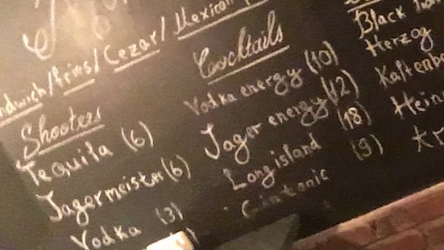 /Fries/Cezar/Mexican
Shooters
Tequila (6)
Jagermeister (6)
Vodka (3)
Cocktails
Vodka energy (10)
Jager energy (12)
Long island (18)
Gintonic (9)
Black
Herzog
Kaltenb
Hein